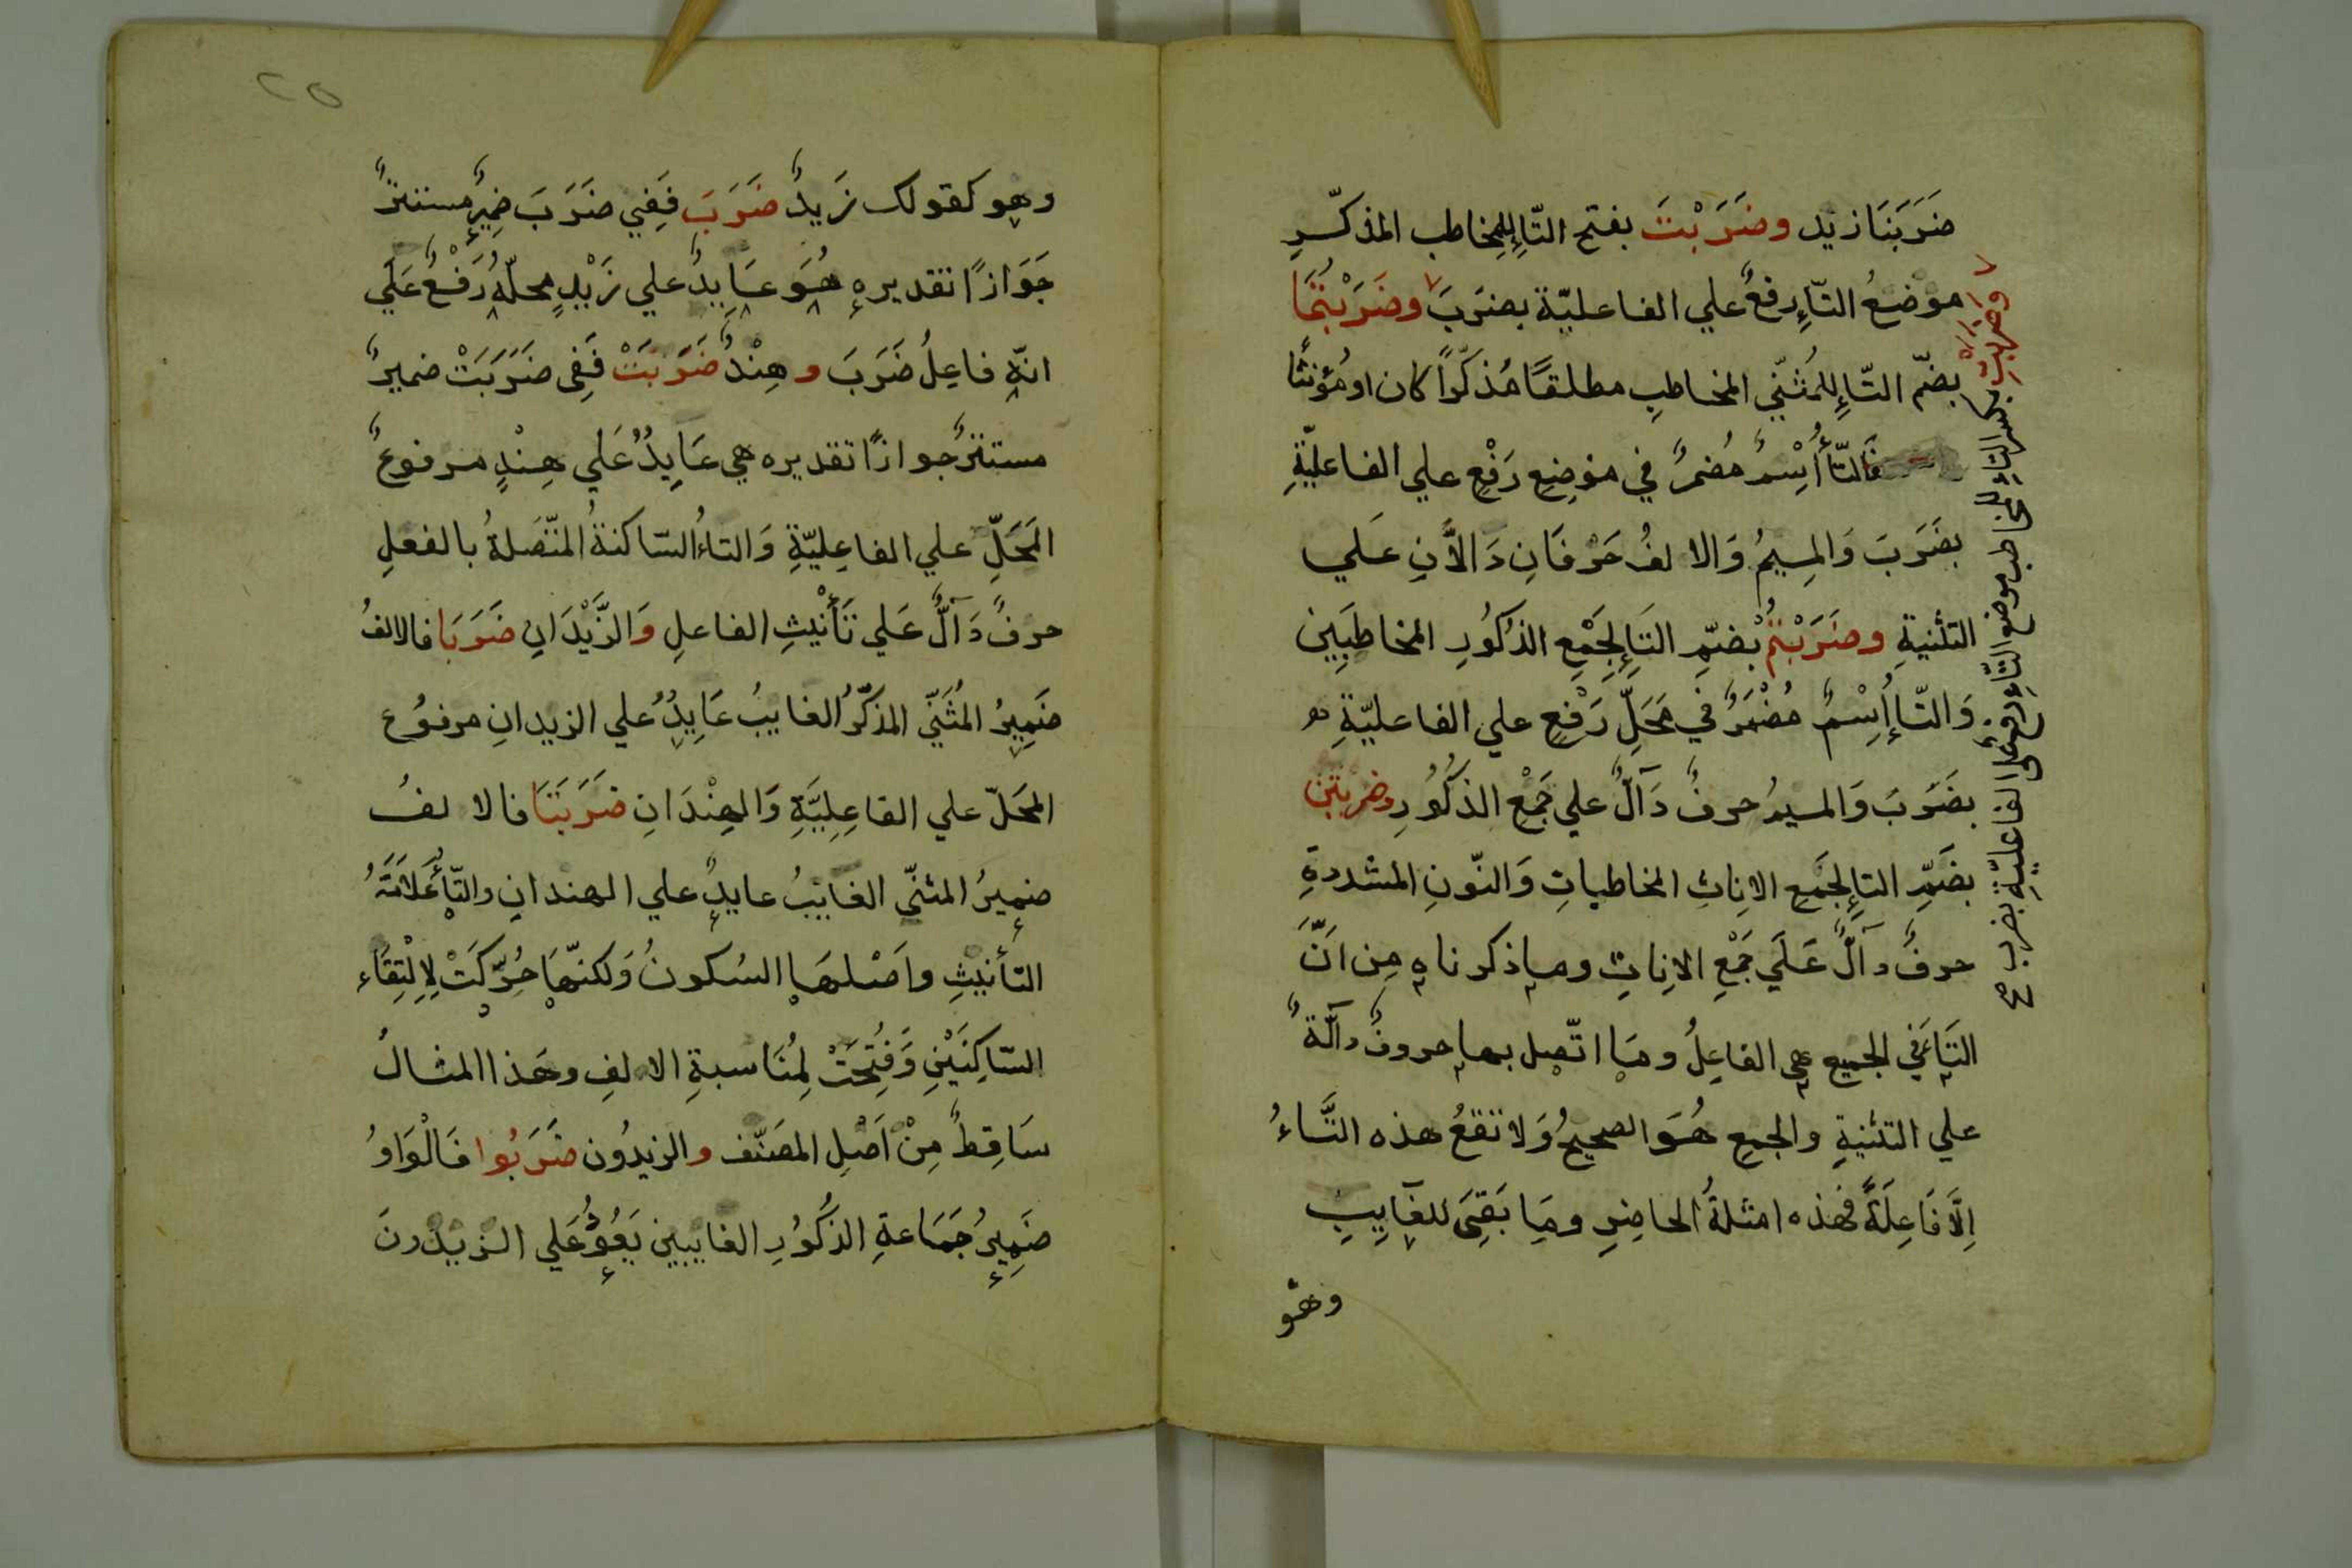 ضَرَبَنَا زيد وضَرَبْتَ بفتح التّاءِ للمخاطب المذكّرِ
موْضعُ التّاءِ رفعٌ علي الفاعليّة بضرَبَ وضَرَبْتُمَا
بضمّ التّاءِ للمُثنّي المخاطبِ مطلقًا مُذكّرًا كان او مُؤنثًا
فَالتّاءُ اُِسْمٌ مُضمرٌ في موْضِعِ رَفْعٍ علي الفاعليّةِ
بضَرَبَ وَالمِيمُ وَالالفُ حَرْفَانِ دَالاَّنِ عَلي
التثنيةِ وضَرَبْتُمْ بُضمِّ التَاءِ لِجَمْعِ الذُكُورِ المخاطَبِين
وَالتّاءُ اُِسْمٌ مُضْمَرٌ في مَحَلِّ رَفْعٍ علي الفاعليّةِ
بضَرَبَ وَالميمُ حرفٌ دَآلٌّ علي جَمْعِ الذُكُورِ وضربتن
بضَمِّ التاءِ لجَمْعِ الاِناثِ المخاطباتِ وَالنّونِ المشددةِ
حرفٌ دآلٌّ عَلَي جَمْعِ الاِناثِ وما ذكرناه مِن اَنَّ
التَاءَ في الجميع هي الفاعِلُ ومَا اتّصل بها حروفٌ دآلّةٌ
علي التثنيةِ والجمعِ هُوَ الصحيحُ وَلا تقعُ هذه التَّاءُ
اِلاَّ فَاعِلَةً فهذه امثلةُ الحاضِرِ ومَا بَقِيَ للغَايِبِ
وهُو
وضربتِ بكسر التاءِ للمخاطب موضع التّاءِ رفع علي الفاعليّةِ بضرب صح
٢٥
وهو كقولك زَيدٌ ضَرَبَ فَفِي ضَرَبَ ضَمِيرٌ مستترٌ
جَوَازًا تقديره هُوَ عَايِدٌ علي زَيْدٍ محلّهُ رَفْعٌ عَلَي
انّه فاعِلُ ضَرَبَ وهِنْدٌ ضَرَبَتْ فَفِي ضَرَبَتْ ضميرٌ
مستترٌ جوازًا تقديره هي عَايِدٌ عَلي هِنْدٍ مرفوعُ
المَحَلِّ علي الفاعِليّةِ وَالتاءُ السّاكنةُ المتّصَلةُ بالفعلِ
حرفٌ دَآلٌّ عَلي تَأْنْيثِ الفاعلِ وَالزَّيْدَانِ ضَرَبَا فالالفُ
ضَمِيرُ المُثَنّي المذكّرُ الغايبُ عَايِدٌ علي الزيدانِ مرفوُع
المحَلّ علي الفاعِلِيَّةِ وَالهِنْدَانِ ضَرَبَتَا فالالفُ
ضميرُ المثنّي الغايبُ عايدٌ علي الهندانِ والتّاءُ عَلاَمَةُ
التأنيثِ واَصْلهَا السُكونُ وَلكنّهَا حُرِّكَتْ لِالْتِقَاءِ
السّاكِنَيْنِ وَفُتِحَتْ لِمُنَاسبةِ الالفِ وهَذا المثالُ
سَاقِطٌ مِنْ اَصْلِ المصَنّف والزيدُون ضَرَبُوا فَالْوَاوُ
ضَمِيرُ جَمَاعةِ الذُكُورِ الغايبين يَعُودُ عَلي الزيدُونَ